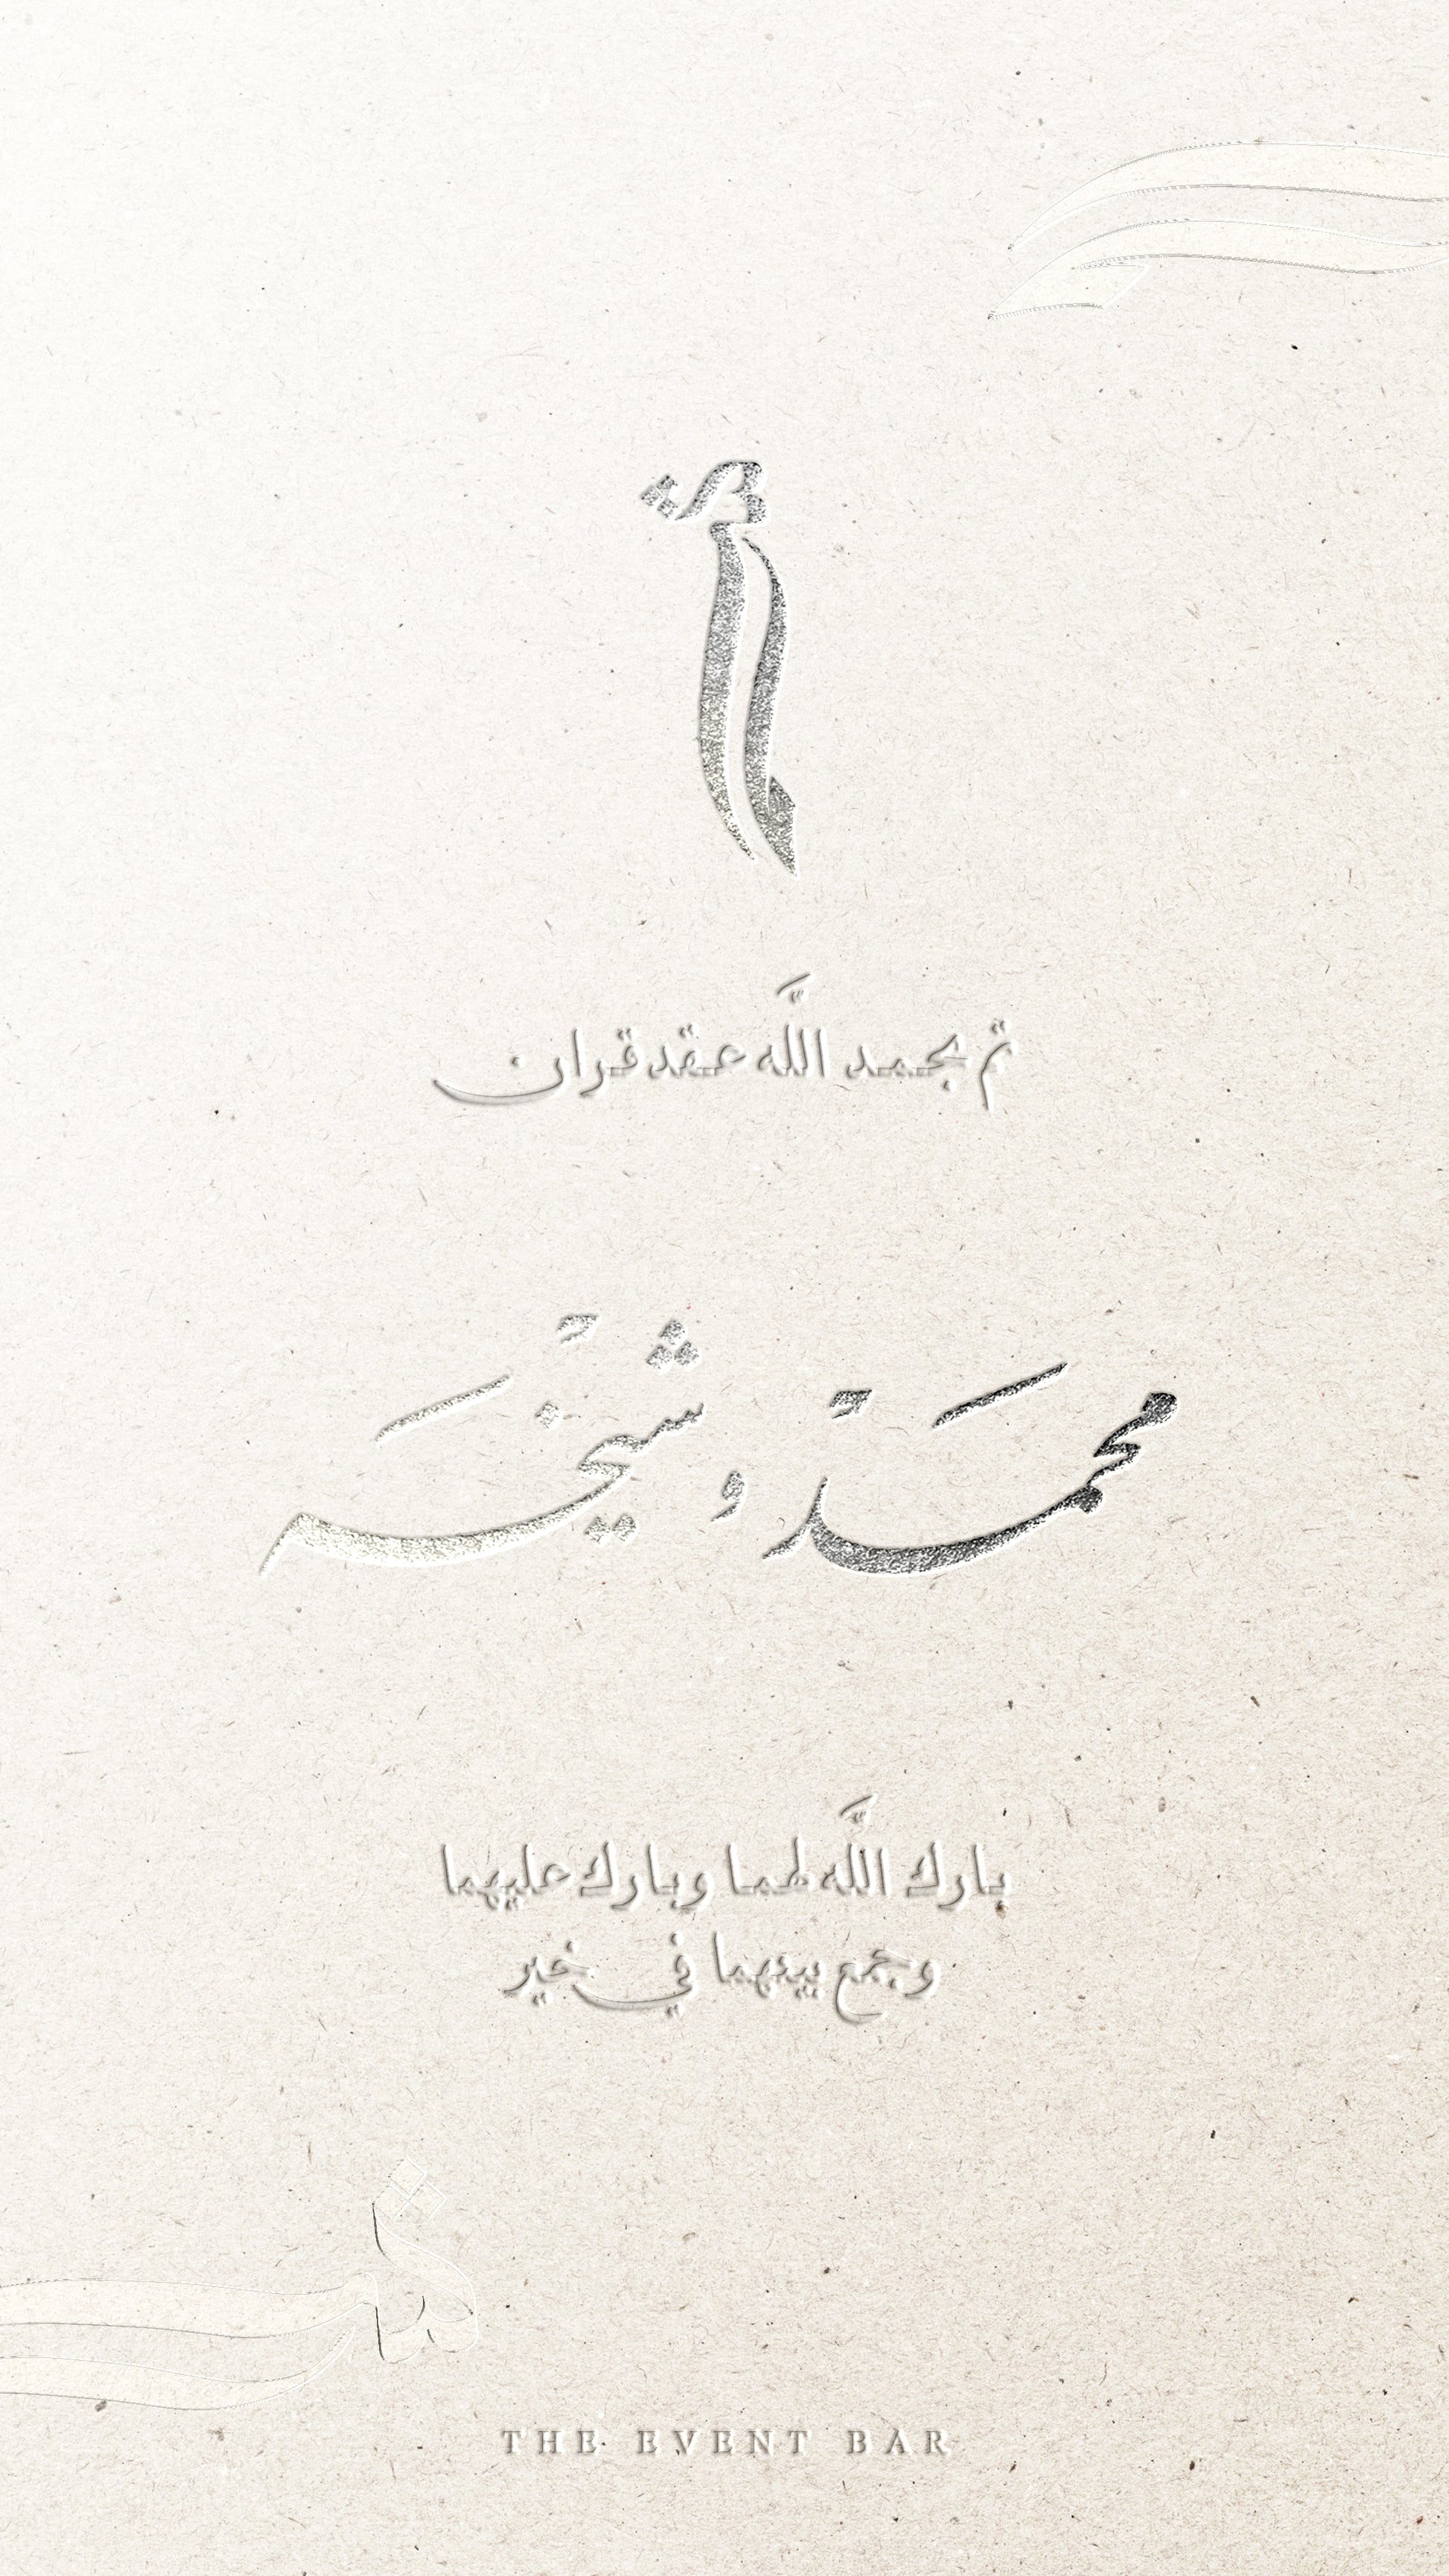 تم بحمد اللَّه عقد قران
محمد و شيخه
بارك اللَّه لهما وبارك عليهما
وجمع بينهما في خير
THE EVENT BAR